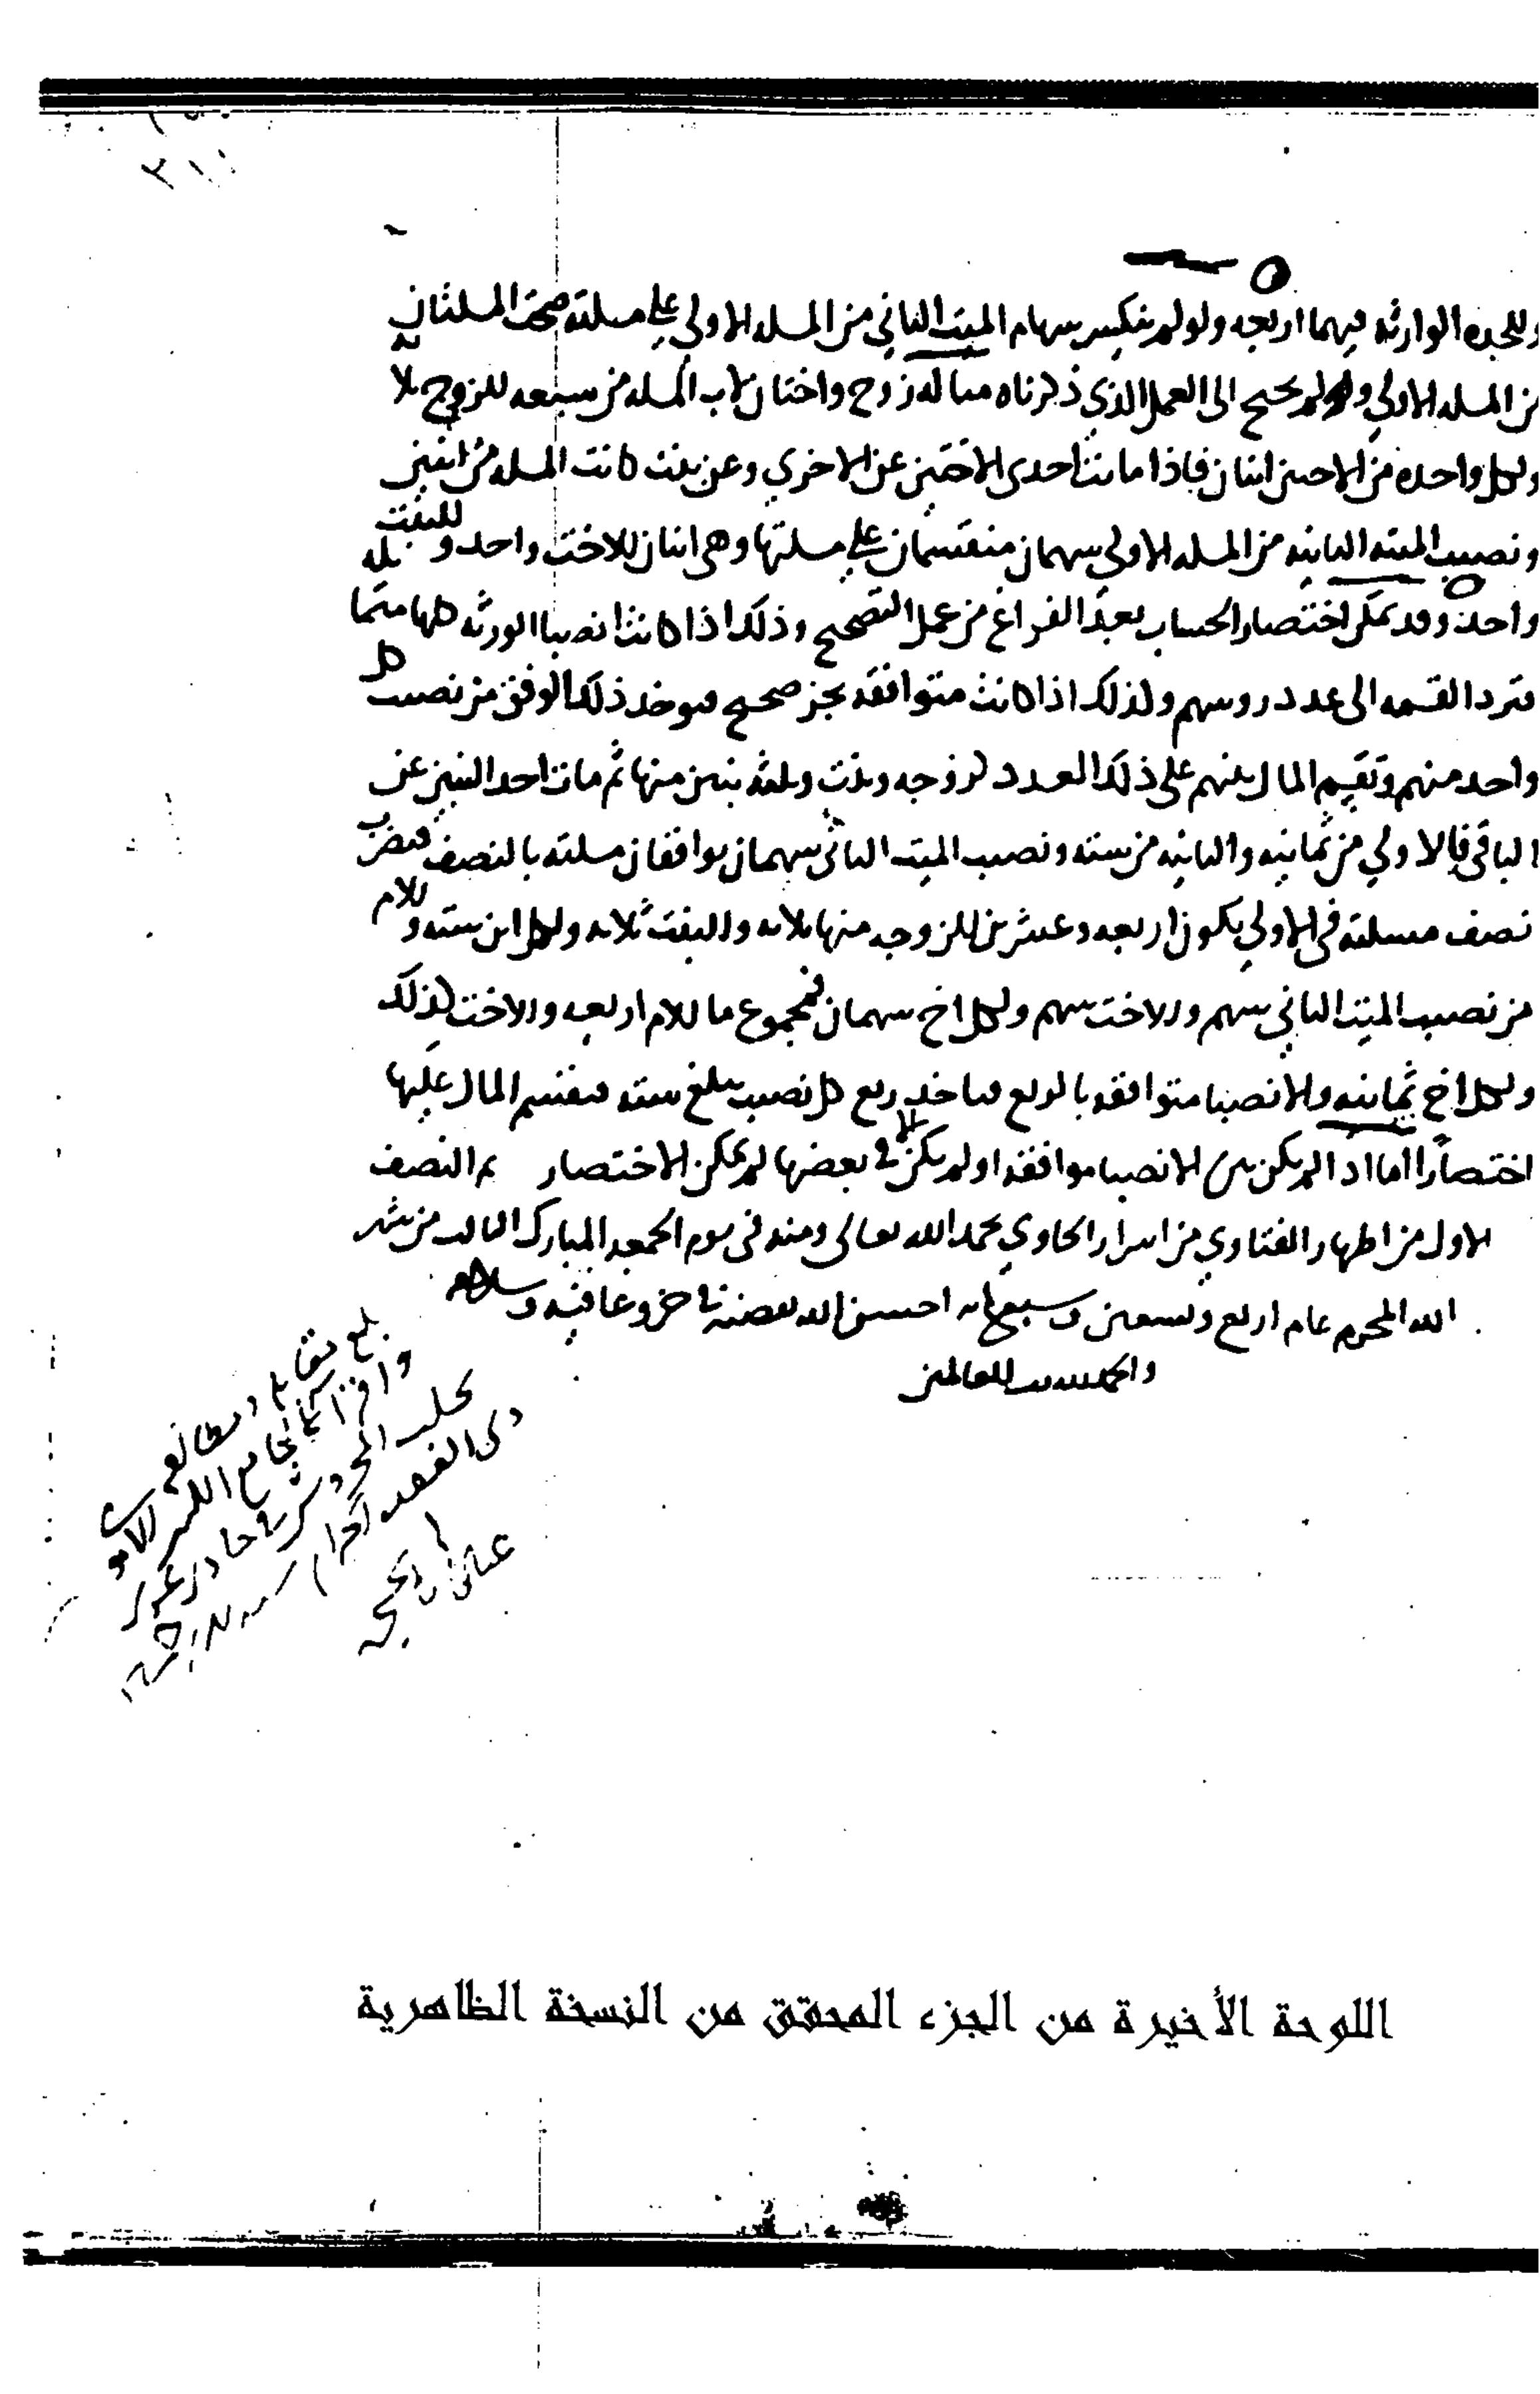 وللجده الوارثه فيهما اربعه ولو لم ينكسر سهام الميت الثاني من المسله الاولي علي مسلته صحت المسلتان
من المسله الاولي ولم يحتج الى العمل الذي ذكرناه مثاله زوج واختان لاب المسله من سبعه للزوج ثلاثه
ولكل واحده من الاختين اثنان فاذا ماتت احدى الاختين عن الاخري وعن بنت كانت المسله من اثنين
ونصيب الميته الثانيه من المسله الاولي سهمان منقسمان علي مسلتها وهي اثنان للاخت واحد وللبنت
واحد وقد يمكن اختصار الحساب بعد الفراغ من عمل التصحيح وذلك اذا كانت انصبا الورثه كلها متماثله
فترد القسمه الى عدد روسهم وكذلك اذا كانت متوافقه بجز صحيح فيوخذ ذلك الوفق من نصيب كل
واحد منهم وتقسم المال بينهم على ذلك العدد كزوجه وبنت وثلثه بنين منها ثم مات احد البنين عن
الباقي فالاولي من ثمانيه والثانيه من سته ونصيب الميت الثاني سهمان يوافقان مسلته بالنصف فيضرب
نصف مسلته في الاولي يكون اربعه وعشرين للزوجه منها ثلاثه وللبنت ثلاثه ولكل ابن سته وللام
من نصيب الميت الثاني سهم وللاخت سهم ولكل اخ سهمان فمجموع ما للام اربعه وللاخت كذلك
ولكل اخ ثمانيه والانصبا متوافقه بالربع فياخذ ربع كل نصيب يبلغ سته فيقسم المال عليها
اختصارا اما اذا لم يكن بين الانصبا موافقه او لم يكن الا في بعضها لم يمكن الاختصار تم النصف
الاول من اظهار الفتاوي من اسرار الحاوي بحمد الله تعالى ومنه في يوم الجمعه المبارك الثالث من شهر
الله المحرم عام اربع وتسعين وسبعمايه احسن الله تقضيه في خير وعافيه وسلامه
والحمد لله رب العالمين
بلغ مقابله
اللوحة الأخيرة من الجزء المحقق من النسخة الظاهرية